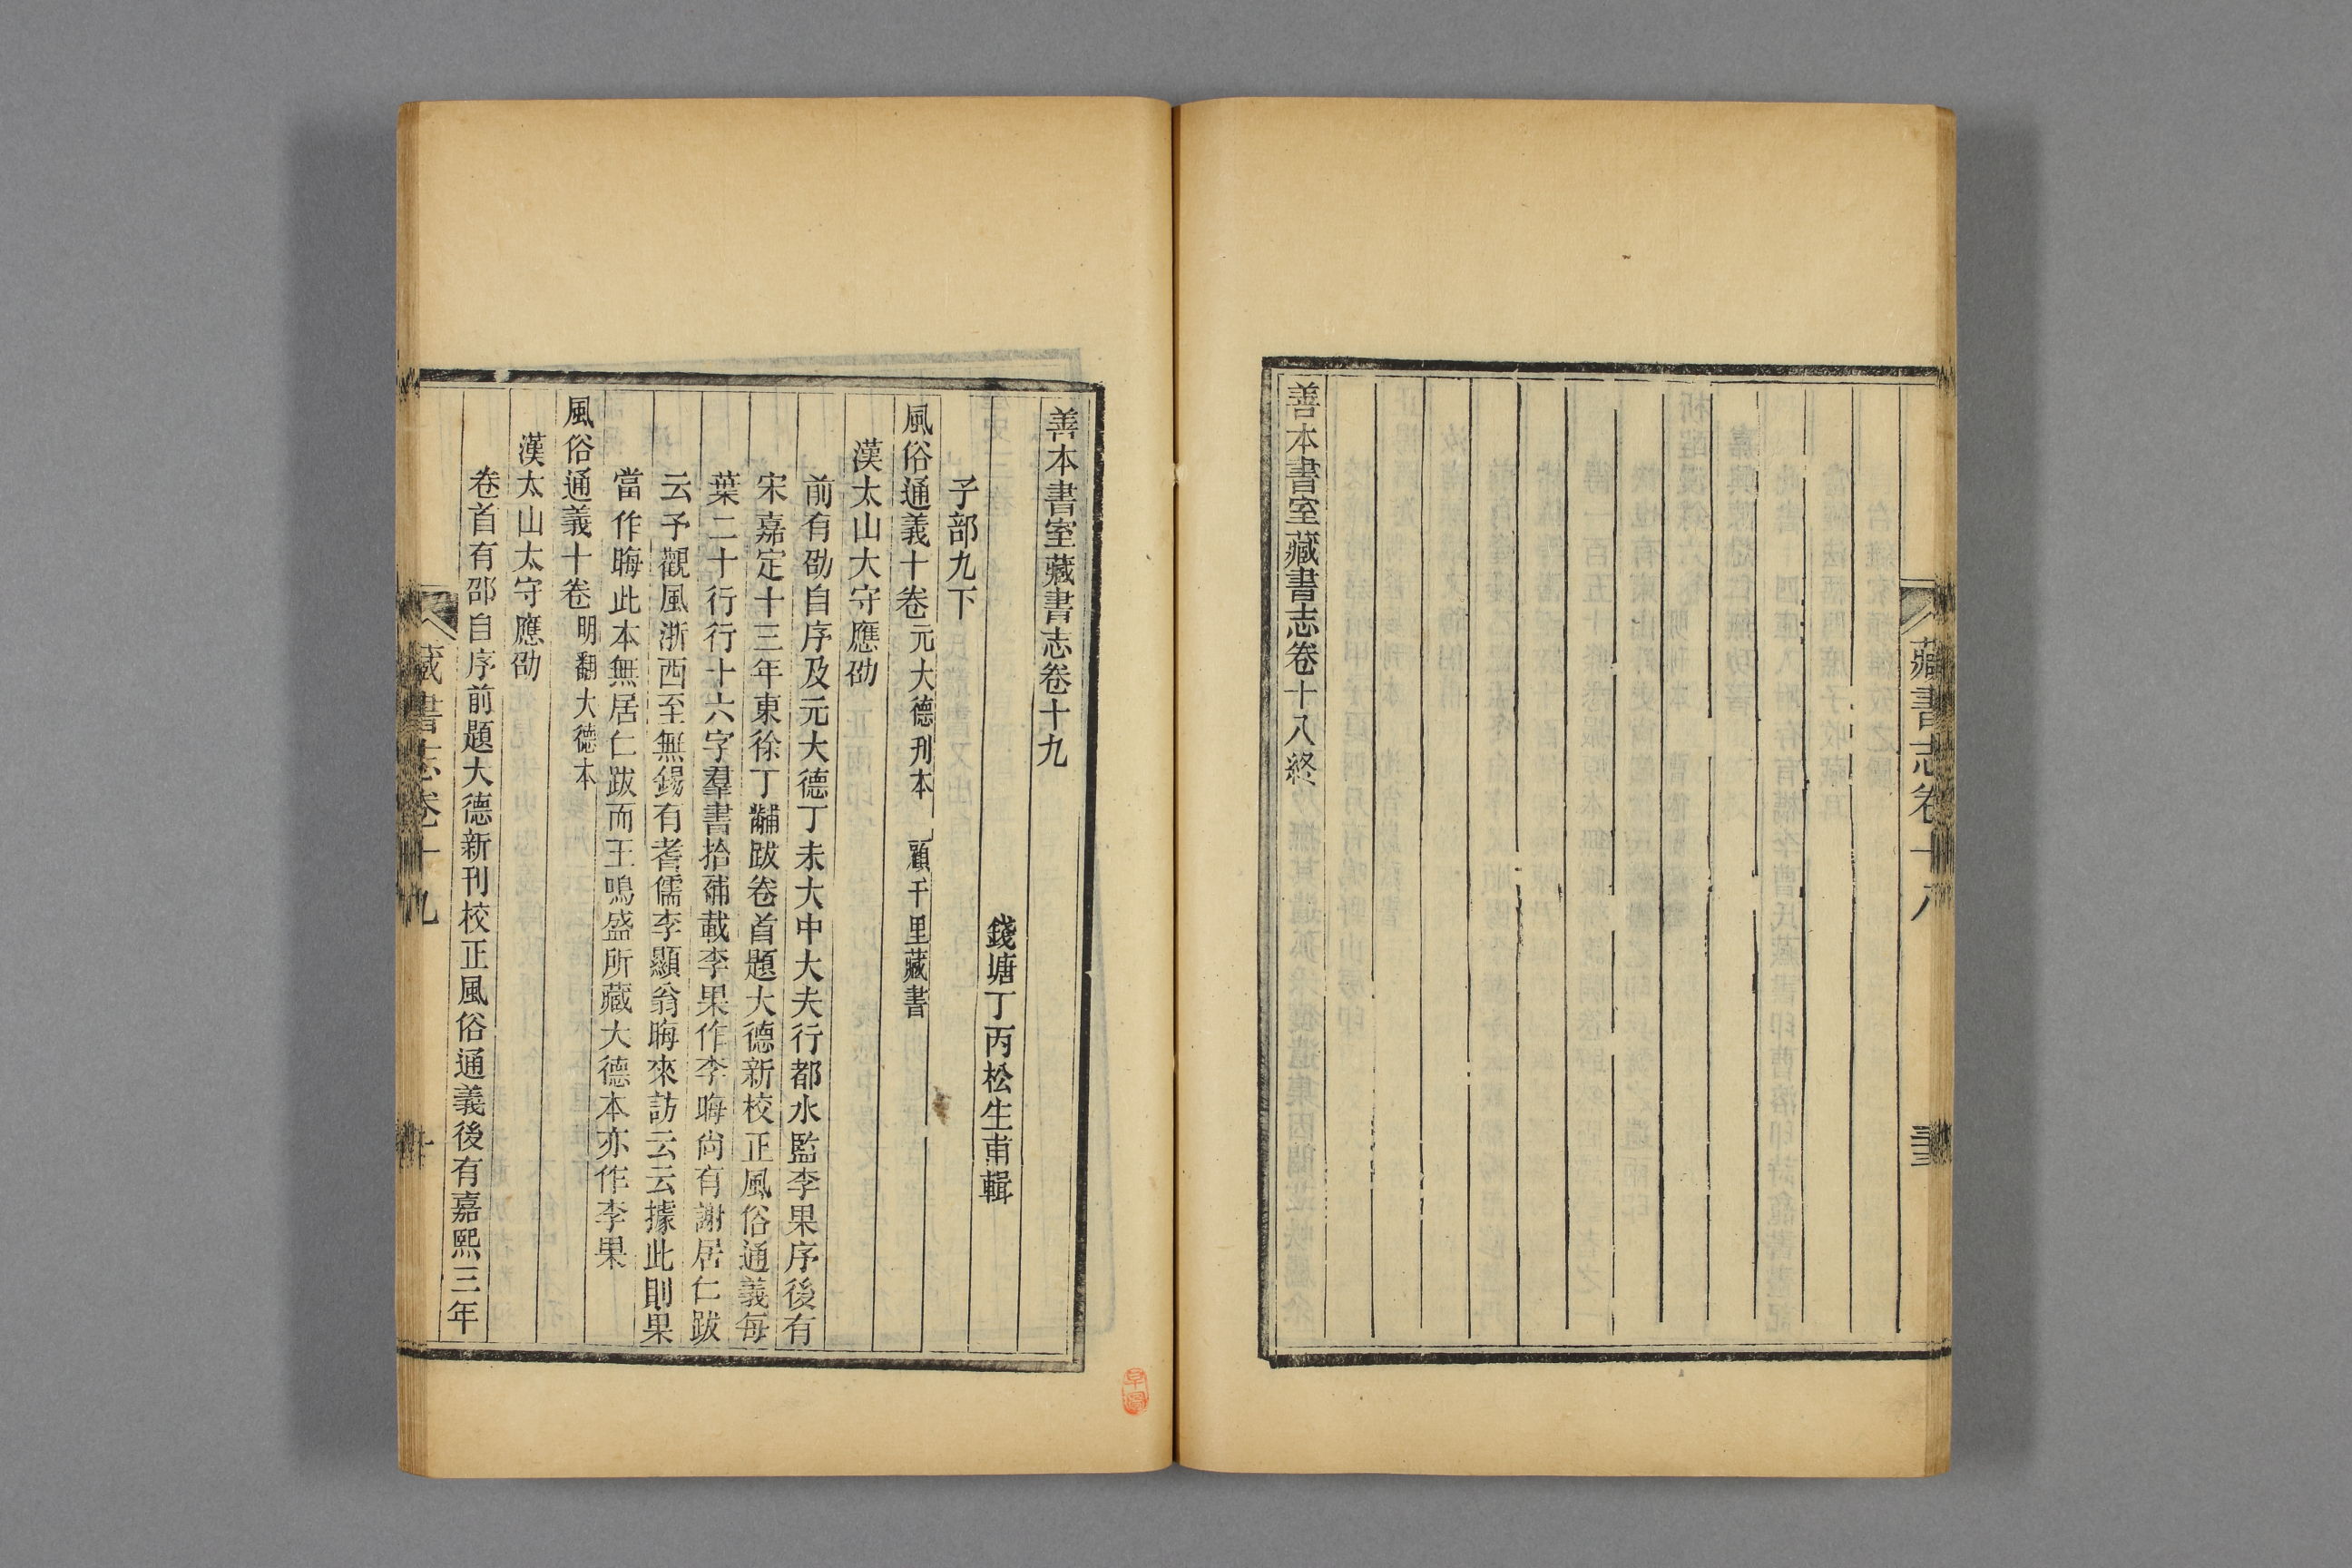 藏書志卷十八
善本書室藏書志卷十八終
善本書室藏書志卷十九
錢塘丁丙松生甫輯
子部九下
風俗通義十卷 元大德刊本 顧千里藏書
漢太山大守應劭
前有劭自序及元大德丁未大中大夫行都水監李果序後有
宋嘉定十三年東徐丁黼跋卷首題大德新校正風俗通義每
葉二十行行十六字羣書拾補載李果作李晦尙有謝居仁跋
云予觀風浙西至無錫有耆儒李顯翁晦來訪云云據此則果
當作晦此本無居仁跋而王鳴盛所藏大德本亦作李果
風俗通義十卷 明翻大德本
漢太山太守應劭
卷首有邵自序前題大德新刊校正風俗通義後有嘉熙三年
藏書志卷十九